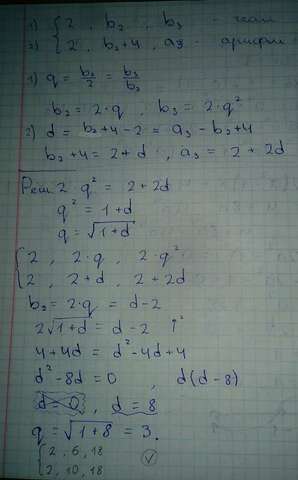 1) { 2 , b₂ , b₃ - геом
2) { 2 , b₂+4 , a₃ - арифм
1) q = b₂/2 = b₃/b₂
b₂ = 2·q , b₃ = 2·q²
2) d = b₂+4-2 = a₃-b₂+4
b₂+4 = 2+d , a₃ = 2+2d
Реш 2·q² = 2+2d
q² = 1+d
q = √1+d
{ 2 , 2·q , 2·q²
2 , 2+d , 2+2d
b₂ = 2·q = d-2
2√1+d = d-2 ↑²
4+4d = d²-4d+4
d²-8d = 0 , d(d-8)
d=0 , d=8
q = √1+8 = 3.
{ 2, 6, 18
2, 10, 18